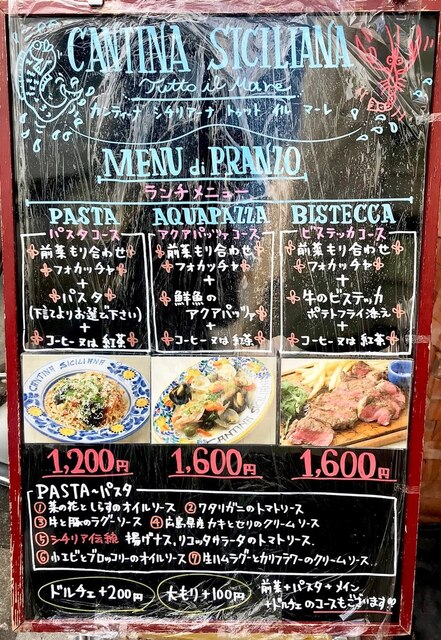 CANTINA SICILIANA
Tutto il Mare
カンティーナ シチリアーナ トゥット イル マーレ
MENU di PRANZO
ランチメニュー
PASTA
パスタコース
前菜もり合わせ
フォカッチャ
+
パスタ
(下記よりお選び下さい)
+
コーヒー又は紅茶
AQUAPAZZA
アクアパッツァコース
前菜もり合わせ
フォカッチャ
+
鮮魚の
アクアパッツァ
+
コーヒー又は紅茶
BISTECCA
ビステッカコース
前菜もり合わせ
フォカッチャ
+
牛のビステッカ
ポテトフライ添え
+
コーヒー又は紅茶
CANTINA SICILIANA
1,200円
1,600円
1,600円
PASTA~パスタ
①菜の花としらすのオイルソース ②ワタリガニのトマトソース
③牛と豚のラグーソース ④広島県産カキとセリのクリームソース
⑤シチリア伝統 揚げナス、リコッタサラータのトマトソース
⑥小エビとブロッコリーのオイルソース ⑦生ハムラグーとカリフラワーのクリームソース
ドルチェ+200円
大もり+100円
前菜+パスタ+メイン
+ドルチェのコースもございます♡